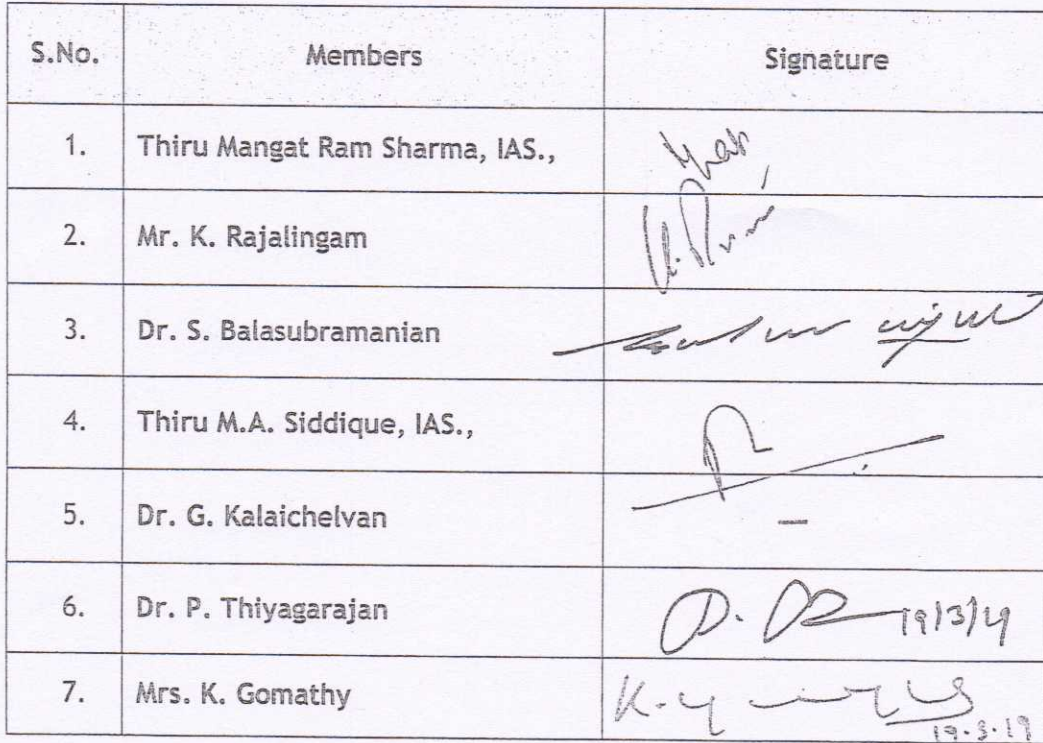 S.No. Members Signature
1. Thiru Mangat Ram Sharma, IAS.,
2. Mr. K. Rajalingam
3. Dr. S. Balasubramanian
4. Thiru M.A. Siddique, IAS.,
5. Dr. G. Kalaichelvan –
6. Dr. P. Thiyagarajan 19/3/19
7. Mrs. K. Gomathy
19.3.19